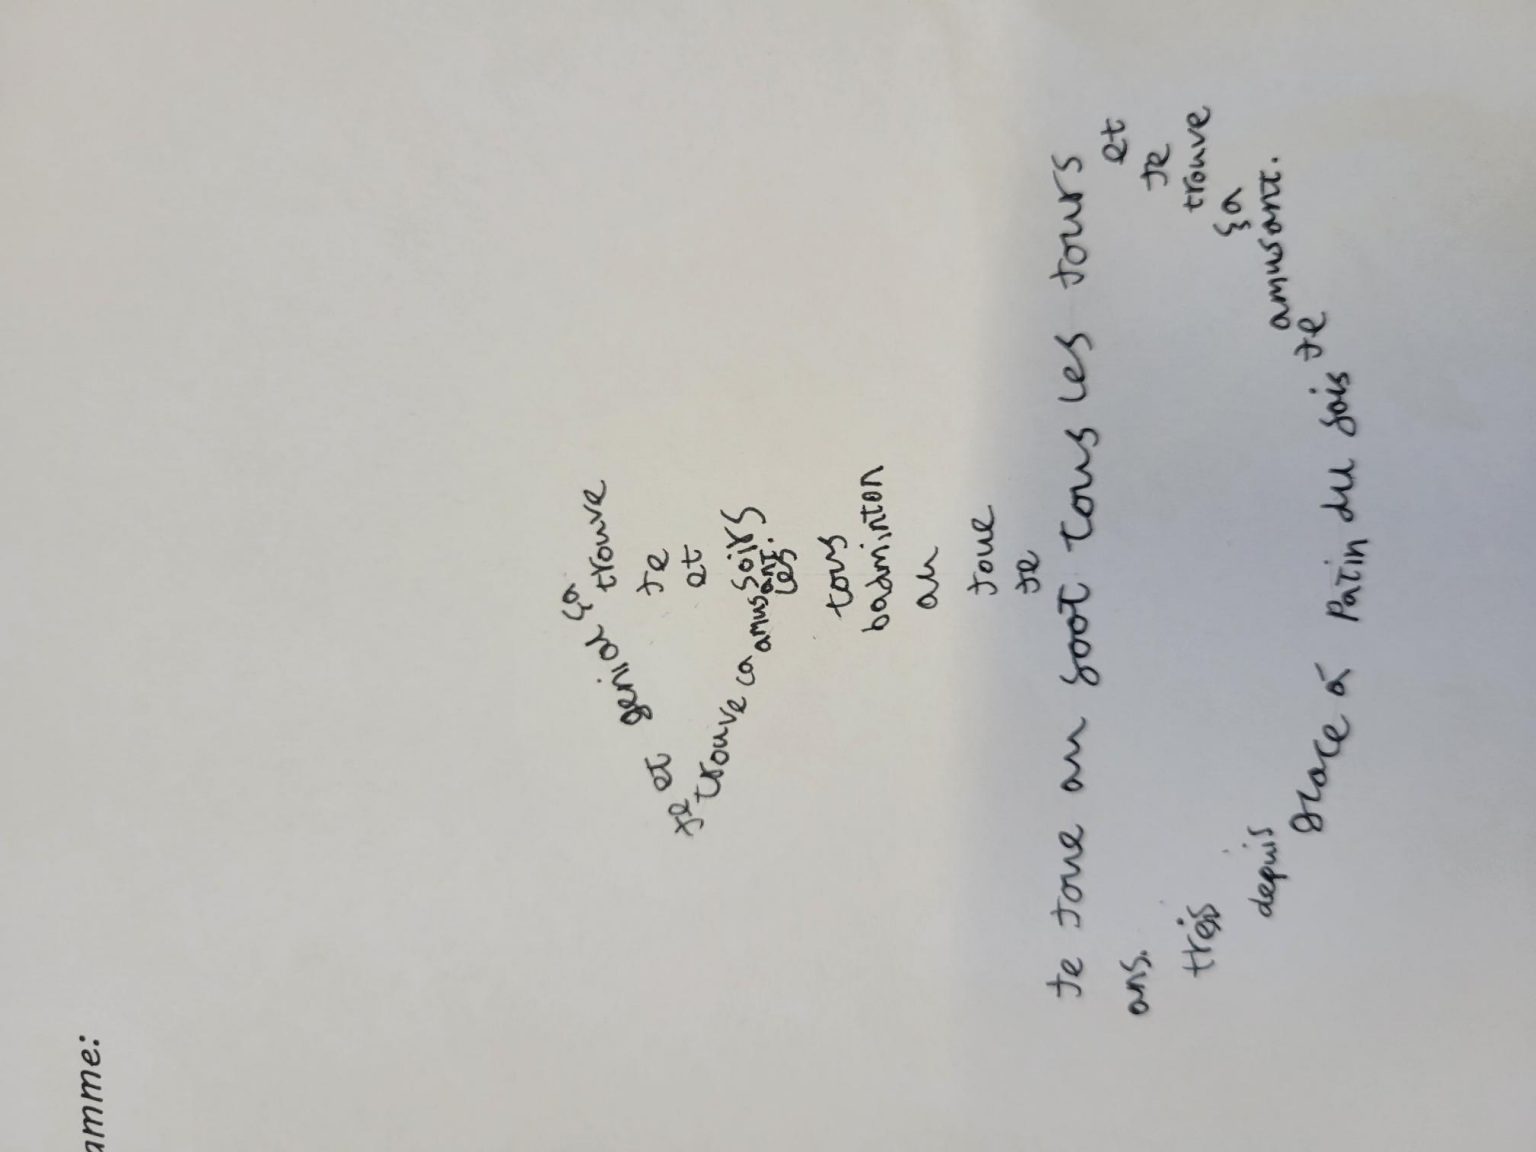 amme:
Je
Joue
au
badminton
tous
les
soirs
et
Je
trouve
ça
genial
et
Je
trouve
ca
amusant.
Je Joue au foot tous les Jours
et
Je
trouve
ça
amusant.
Je
fais
du
Patin
à
glace
depuis
trés
ans.